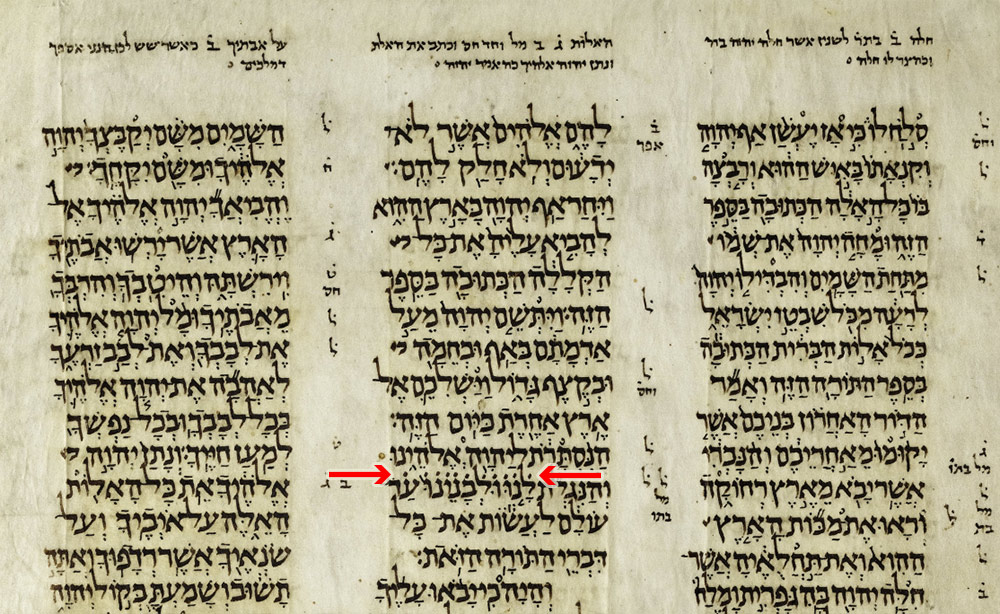 חלה ב בתר לשנין אשר חלה יהוה בה
סלח לו כי אז יעשן אף יהוה
וקנאתו באיש ההוא ורבצה
בו כל האלה הכתובה בספר
הזה ומחה יהוה את שמו
מתחת השמים והבדילו יהוה
לרעה מכל שבטי ישראל
ככל אלות הברית הכתובה
בספר התורה הזה ואמר
הדור האחרון בניכם אשר
יקומו מאחריכם והנכרי
אשר יבא מארץ רחוקה
וראו את מכות הארץ
ההוא ואת תחלאיה אשר
חלה יהוה בה גפרית ומלח
האלות ג ב מל וחד חס וכתב את האלת
ונתן יהוה אלהיך כה אמר יהוה
להם אלהים אשר לא
ידעום ולא חלק להם׃
ויחר אף יהוה בארץ ההוא
להביא עליה את כל
הקללה הכתובה בספר
הזה׃ ויתשם יהוה מעל
אדמתם באף ובחמה
ובקצף גדול וישלכם אל
ארץ אחרת כיום הזה׃
הנסתרת ליהוה אלהינו
והנגלת לנו ולבנינו עד
עולם לעשות את כל
דברי התורה הזאת׃
והיה כי יבאו עליך
על אבתיך ב כאשר שש לכן הנני אספך
דמלכים
השמים משם יקבצך יהוה
אלהיך ומשם יקחך
והביאך יהוה אלהיך אל
הארץ אשר ירשו אבתיך
וירשתה והיטבך והרבך
מאבתיך׃ ומל יהוה אלהיך
את לבבך ואת לבב זרעך
לאהבה את יהוה אלהיך
בכל לבבך ובכל נפשך
למען חייך׃ ונתן יהוה
אלהיך את כל האלות
האלה על איביך ועל
שנאיך אשר רדפוך׃ ואתה
תשוב ושמעת בקול יהוה